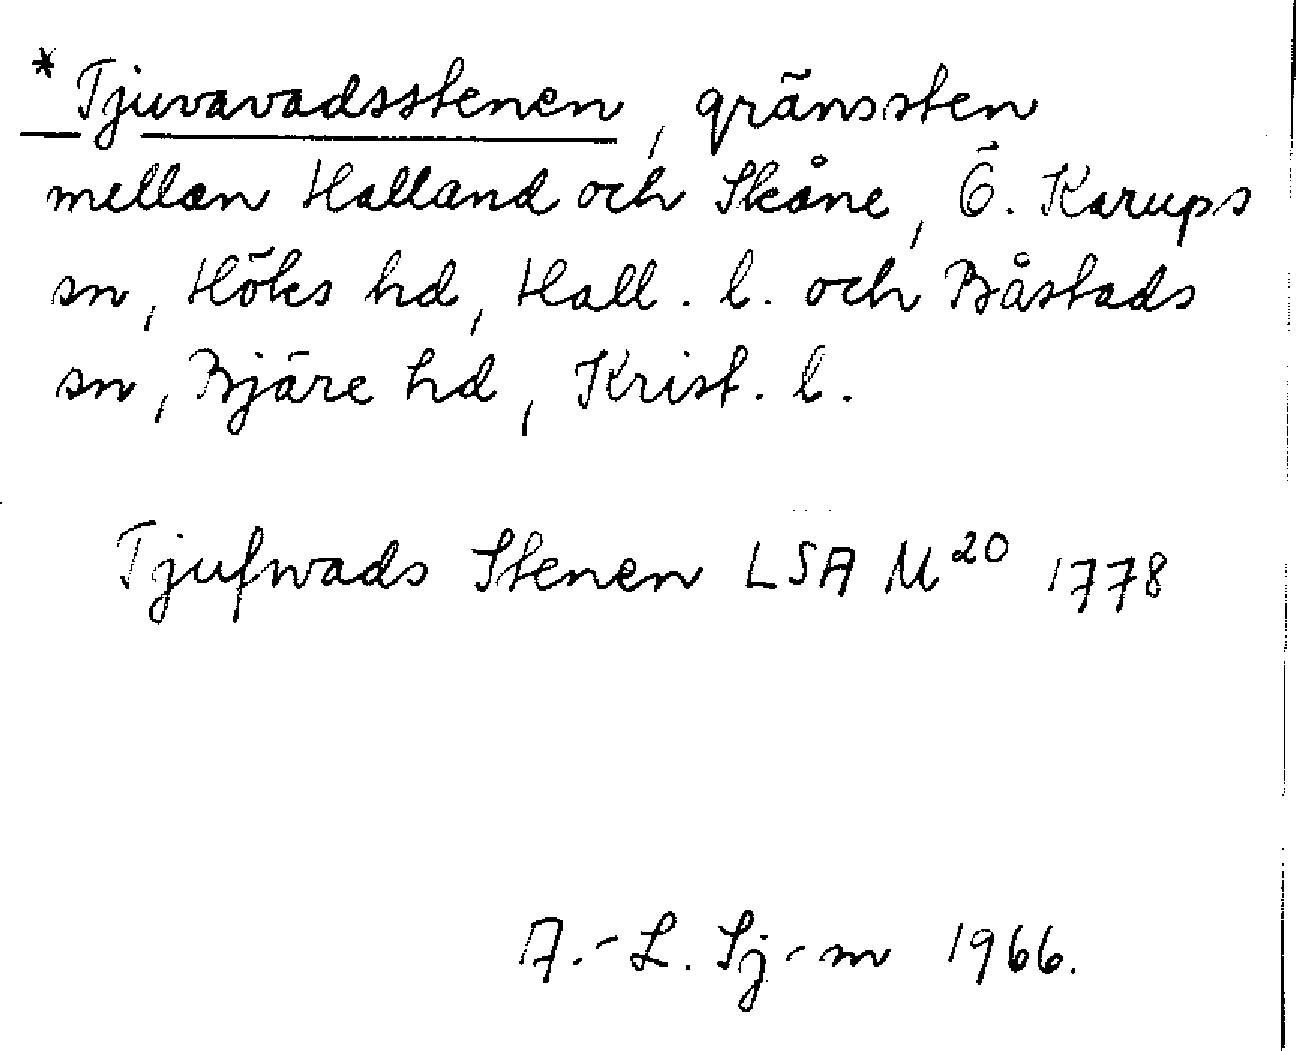 * Tjuvavadsstenen, gränssten
mellan Halland och Skåne, Ö. Karups
sn, Höks hd, Hall. l. och Båstads
sn, Bjäre hd, Krist. l.
Tjufwads Stenen LSA M²⁰ 1778
A.-L. Sj-m 1966.